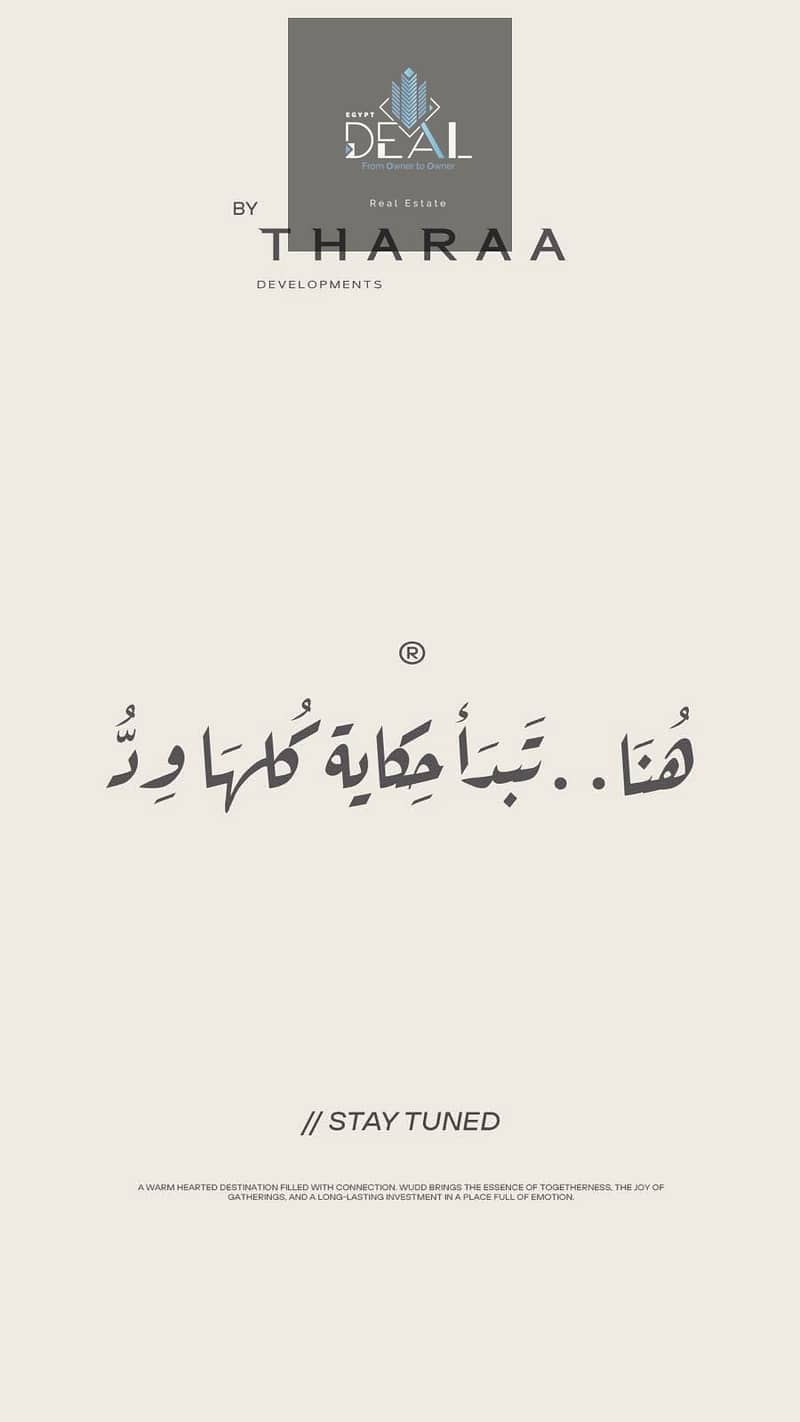 EGYPT
DEAL
From Owner to Owner
Real Estate
BY
THARAA
DEVELOPMENTS
®
هُنَا.. تَبدَأ حِكاية كُلهَا وِدُّ
// STAY TUNED
A WARM HEARTED DESTINATION FILLED WITH CONNECTION. WUDD BRINGS THE ESSENCE OF TOGETHERNESS, THE JOY OF
GATHERINGS, AND A LONG-LASTING INVESTMENT IN A PLACE FULL OF EMOTION.